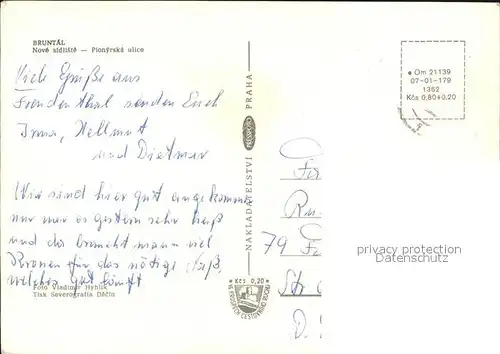 BRUNTÁL
Nové sídliště — Pionýrská ulice
Viele Grüße aus
Freudenthal senden Euch
Irma, Hellmut
und Dietmar
Wir sind hier gut angekommen
nur war es gestern sehr heiß
und da braucht mann viel
Kronen für das nötige Naß,
welches gut
Foto Vladimír Hyhlík
Tisk Severografia Děčín
NAKLADATELSTVÍ PRESSFOTO PRAHA
Om 21139
07-01-179
1362
Kčs 0,80+0,20
Kčs 0,20
79
privacy protection
Datenschutz